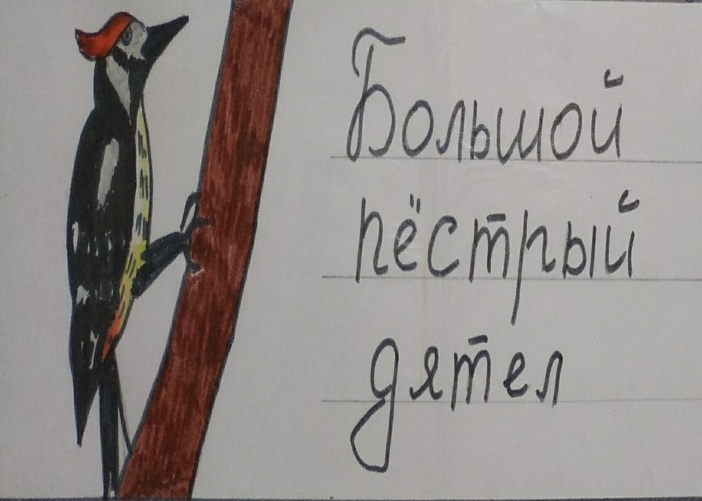 Большой
пёстрый
дятел